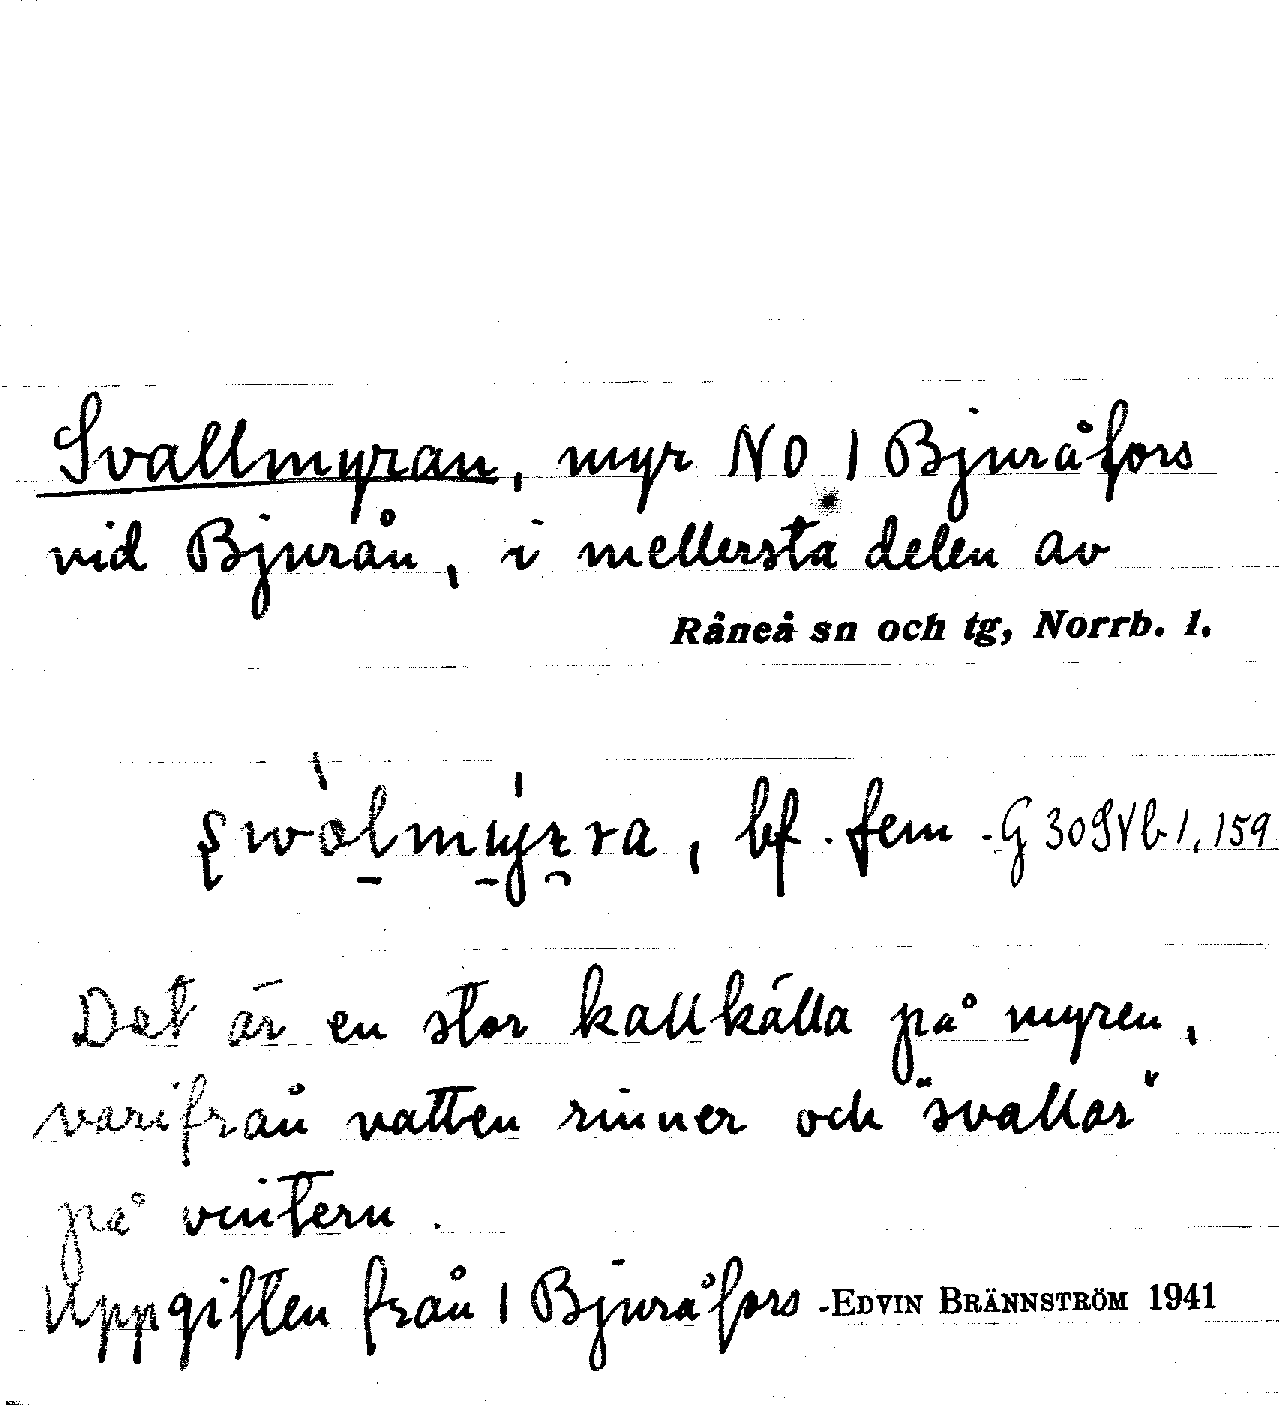 Svallmyran, myr NO 1 Bjuråfors
vid Bjurån, i mellersta delen av
Råneå sn och tg, Norrb. l.
bf. fem - G 30 SVb 1, 159
Det är en stor kallkälla på myren,
varifrån vatten rinner och "svallar"
på vintern.
Uppgiften från 1 Bjuråfors - EDVIN BRÄNNSTRÖM 1941